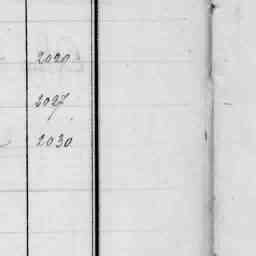 2020
2027
2030